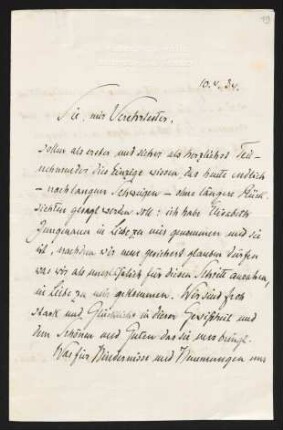 10.V.34.
Sie, mir Verehrtester,
sollen als erster und sicher als herzlichst Teil-
nehmender dies Einzige wissen, das heute endlich
– nach langem Schweigen – ohne längere Rück-
sichten gesagt werden soll: ich habe Elisabeth
Jungmann in Liebe zu mir genommen und sie
ist, nachdem wir nun gesichert glauben dürfen
was wir als unerlässlich für diesen Schritt ansahen,
in Liebe zu mir gekommen. Wir sind froh
stark und glücklich in dieser Gewißheit und
dem Schönen und Guten das sie uns bringt.
Was für Hindernisse und Hemmungen uns